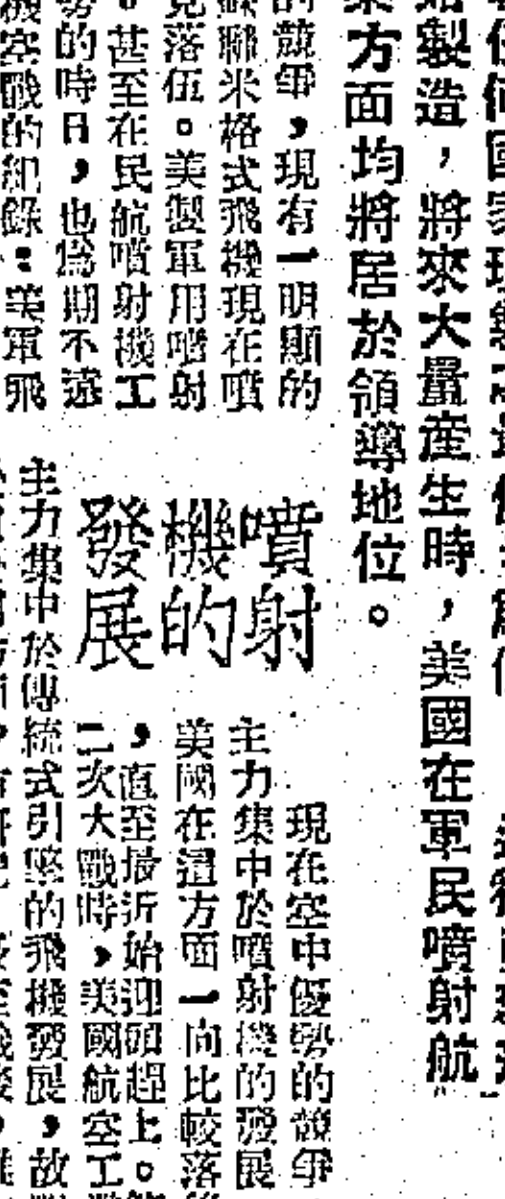 製造，將來大量產生時，美國在軍民噴射航
方面均將居於領導地位。
的競爭，現有一明顯的
米格式飛機現在噴
落伍。美製軍用噴射
。甚至在民航噴射機工
的時日，也為期不遠
空戰的紀錄：美軍飛
噴射
機的
發展
現在空中優勢的競爭
主力集中於噴射機的發展
美國在這方面一向比較落
，直至最近始迎頭趕上。
二次大戰時，美國航空工
主力集中於傳統式引擎的飛機發展，故